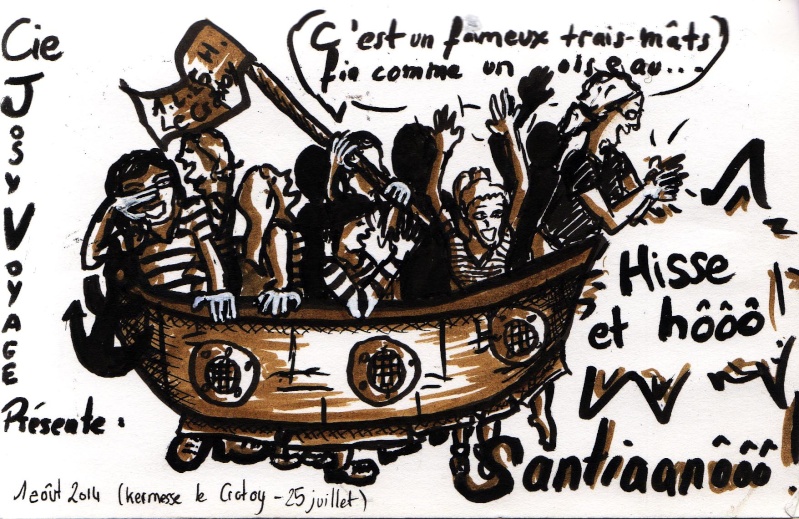 Cie
JOSY
VOYAGE
Présente :
C'est un fameux trais-mâts
fin comme un oiseau...
Hisse
et hôôô
Santiaanôôô
1 août 2014 (kermesse le Crotoy - 25 juillet)